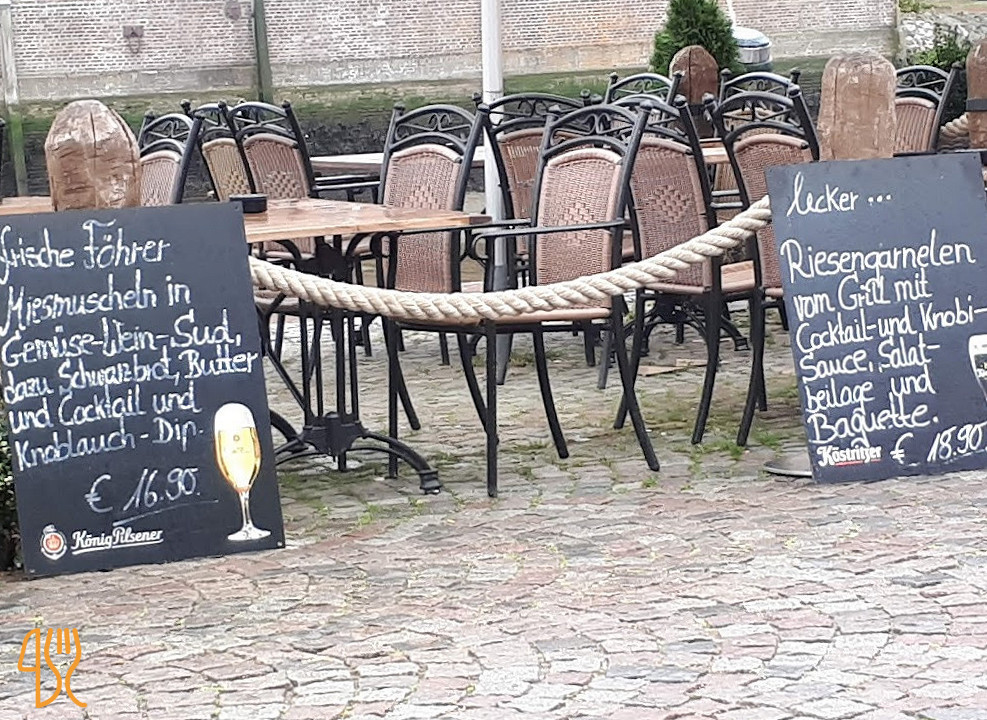 frische Föhrer
Miesmuscheln in
Gemüse-Wein-Sud,
dazu Schwarzbrot, Butter
und Cocktail und
Knoblauch-Dip.
€ 16.90.
König Pilsener
lecker ...
Riesengarnelen
vom Grill mit
Cocktail-und Knobi-
Sauce, Salat-
beilage und
Baguette.
Köstritzer € 18.90